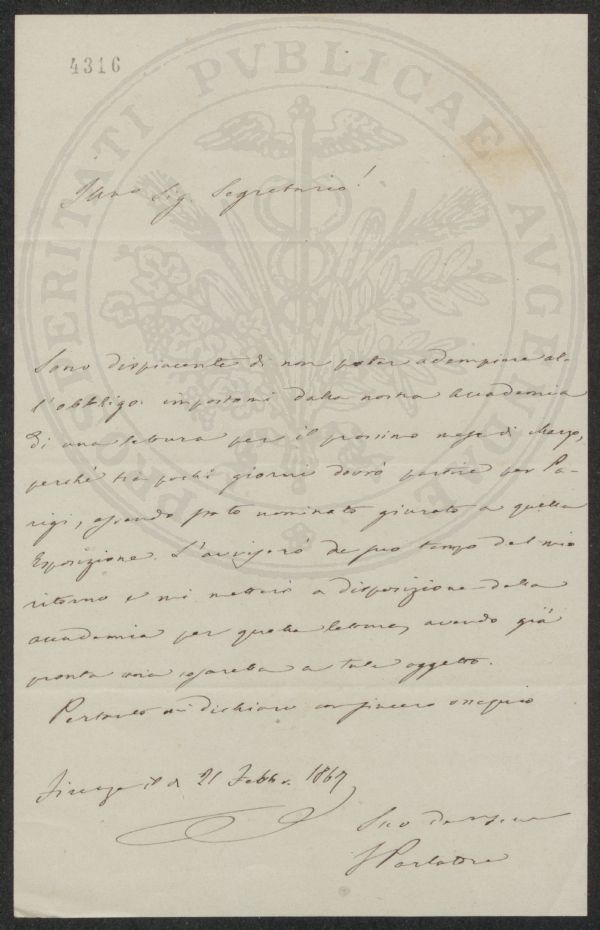 4316
PROSPERITATI PVBLICAE AVGENDAE
Sig. Segretario!
Sono dispiacente di non poter adempiere al-
l'obbligo impostomi dalla nostra Accademia
di una lettura per il prossimo mese di Marzo,
perchè tra pochi giorni dovrò partire per Pa-
rigi, essendo stato nominato giurato a quella
Esposizione. L'avviserò a suo tempo del mio
ritorno e mi metterò a disposizione della
accademia per quella lettura, avendo già
pronta una cosarella a tale oggetto.
Pertanto mi dichiaro con sincero ossequio
Firenze il dì 21 Febbr. 1867
Suo
F Parlatore